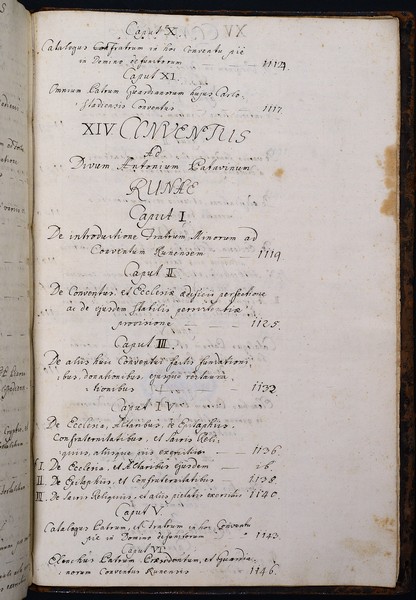 Caput X.
Catalogus Confratrum in hoc Conventu pie
in Domino defunctorum 1114.
Caput XI.
Omnium Patrum Guardianorum hujus Carlo
stadiensis Conventus 1117.
XIV CONVENTUS
Ad
Divum Antonium Patavinum
RUNÆ
Caput I
De introductione Fratrum Minorum ad
Conventum Runensem 1119
Caput II
De Conventus et Ecclesiæ ædificii perfectione
ac de ejusdem stabilis
provisione 1125.
Caput III.
De aliis huic Conventui factis fundationi
bus, donationibus, ejusque
1132.
Caput IV.
De Ecclesia, Altaribus, & Epitaphiis,
Confraternitatibus, et sacris Reli
quiis, aliisque piis exercitiis 1136.
I. De Ecclesia, et Altaribus ejusdem ib.
II. De Epitaphiis, et Confraternitatibus 1138.
III. De sacris Reliquiis, et aliis pietatis exercitiis 1140.
Caput V.
Catalogus Patrum, et Fratrum in hoc Conventu
pie in Domino defunctorum 1143.
Caput VI.
Elenchus Patrum Præsidentium, et Guardia
norum Conventus Runensis 1146.